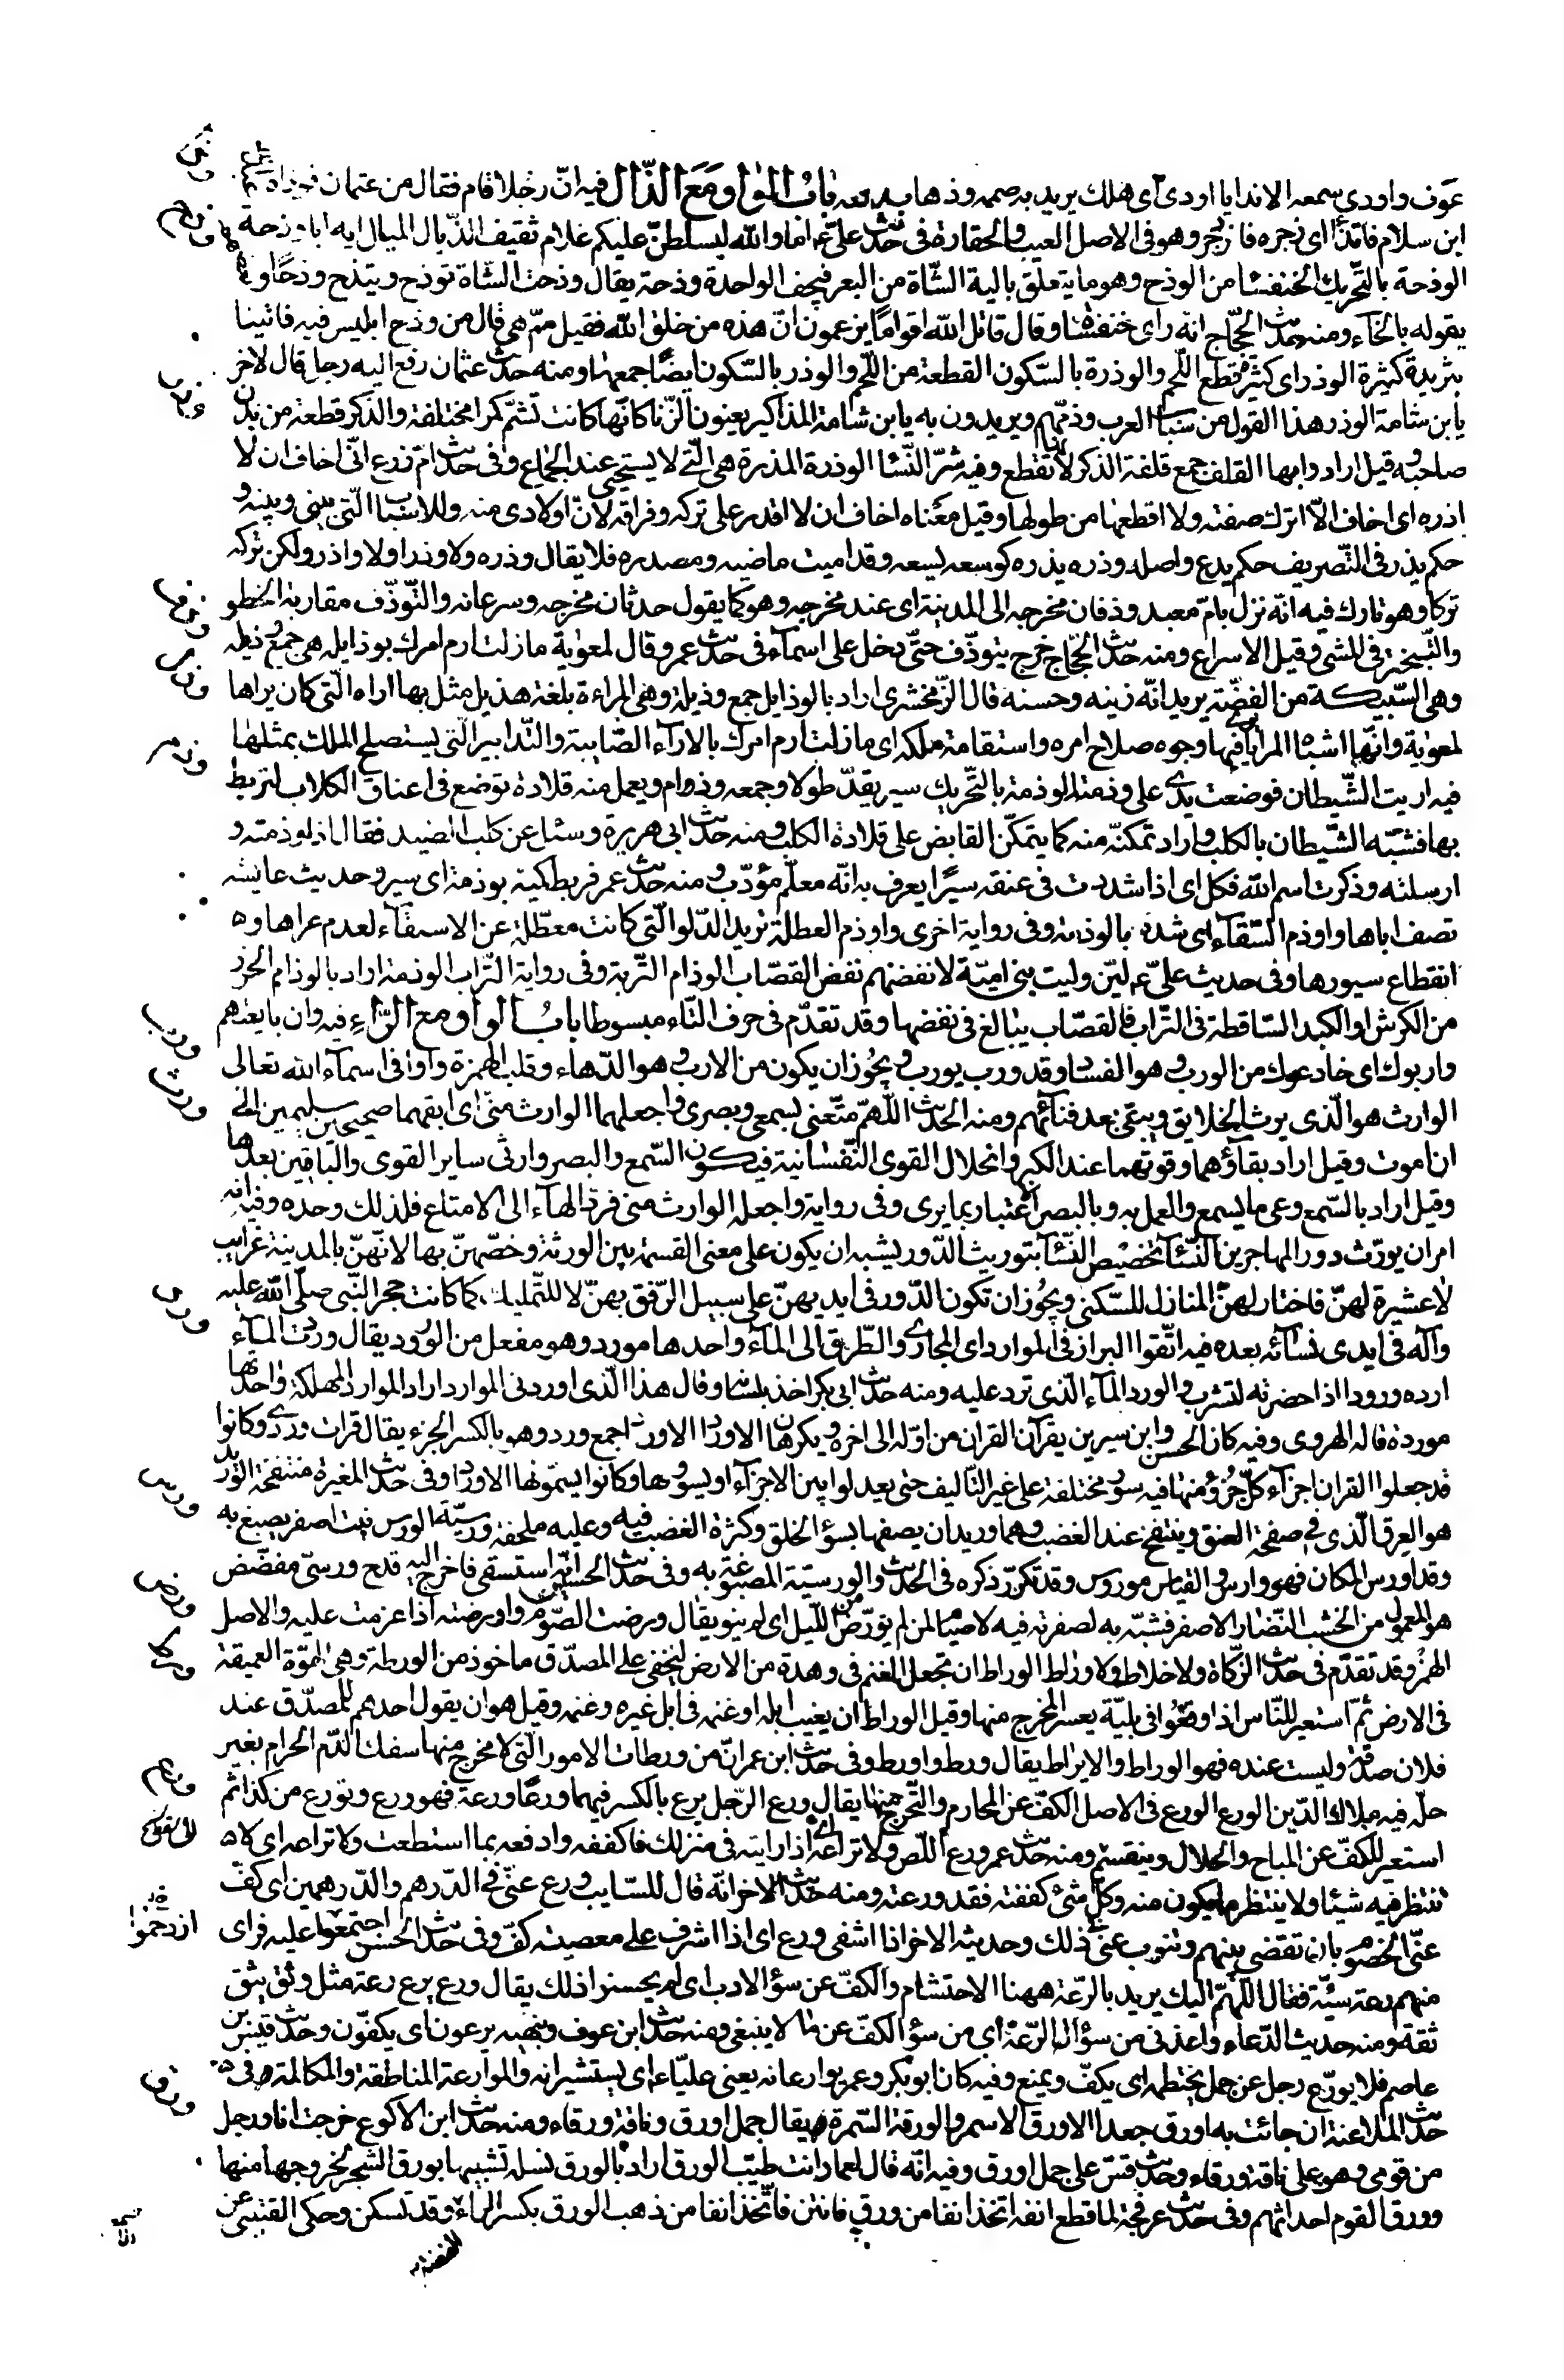 عوف واودى سمعه الا ندايا اودى اى هلك يريد به صممه وذهاب سمعه باب الواو مع الذال فيه ان رجلا قام فقال من عثمان فوذاه
ابن سلام فاتذأ اى زجره فازدجر وهو فى الاصل العيب والحقارة فى حديث على ع اما والله ليسلطن عليكم غلام ثقيف الذيال الميال ايه ابا وذحة
الوذحة بالتحريك الخنفسا من الوذح وهو ما يتعلق بالية الشاة من البعر فيجف الواحدة وذحة يقال وذحت الشاة توذح وتيذح وذحا و
يقوله بالخآء ومنه حديث الحجاج انه راى خنفساة وقال قاتل الله اقواما يزعمون ان هذه من خلق الله فقيل مم هى قال من وذح ابليس فيه فاتينا
بثريدة كثيرة الوذر اى كثيرة قطع اللحم والوذرة بالسكون القطعة من اللحم والوذر بالسكون ايضا جمعها ومنه حديث عثمان رفع اليه رجل قال لاخر
يا بن شامة الوذر هذا القول من سباب العرب وذمهم ويريدون به يا بن شامة المذاكير يعنون الزنا كانها كانت تشم كمرا مختلفة والذكر قطعة من بدن
صاحبه وقيل ارادوا بها القلف جمع قلفة الذكر لانها تقطع وفيه شر النسا الوذرة المذرة هى التى لا يستحيى عند الجماع وفى حديث ام زرع انى اخاف ان لا
اذره اى اخاف الا اترك صفته ولا اقطعها من طولها وقيل معناه اخاف ان لا اقدر على تركه وفراقه لان اولادى منه وللاسباب التى بينى وبينه و
حكم يذر فى التصريف حكم يدع واصله وذره يذره كوسعه يسعه وقد اميت ماضيه ومصدره فلا يقال وذره ولا وذرا ولا واذر ولكن تركه
تركا وهو تارك فيه انه نزل بام معبد وذفان مخرجه الى المدينة اى عند مخرجه وهو كما يقول حدثان مخرجه وسرعانه والتوذف مقاربة الخطو
والتبختر فى المشى وقيل الاسراع ومنه حديث الحجاج خرج يتوذف حتى دخل على اسمآء فى حديث عمرو قال لمعوية ما زلت ارم امرك بوذايله هى جمع وذيلة
وهى السبيكة من الفضة يريد انه زينه وحسنه قال الزمخشرى اراد بالوذايل جمع وذيلة وهى المراءة بلغة هذيل مثل بها اراه التى كان يراها
لمعوية وانها اشباه المرايا يرى فيها وجوه صلاح امره واستقامة ملكه اى ما زلت ارم امرك بالارآء الصايبة والتدابير التى يستصلح الملك بمثلها
فيه اريت الشيطان فوضعت يدى على وذمته الوذمة بالتحريك سير يقد طولا وجمعه وذام ويعمل منه قلادة توضع فى اعناق الكلاب لتربط
بها فشبه الشيطان بالكلب واراد تمكنه منه كما يتمكن القابض على قلادة الكلب ومنه حديث ابى هريرة وسئل عن كلب الصيد فقال اذا وذمته و
ارسلته وذكرت اسم الله فكل اى اذا شددت فى عنقه سيرا يعرف به انه معلم مؤدب ومنه حديث عمر فربط كميه بوذمة اى سير وحديث عايشه
تصف اباها واوذم السقآء اى شده بالوذمة وفى رواية اخرى واوذم العطلة تريد الدلو التى كانت معطلة عن الاستقآء لعدم عراها و
انقطاع سيورها وفى حديث على ع لئن وليت بنى امية لانفضنهم نفض القصاب الوذام التربة وفى رواية التراب الوذمة اراد بالوذام الحزز
من الكرش او الكبد الساقطة فى التراب فالقصاب يبالغ فى نفضها وقد تقدم فى حرف التاء مبسوطا باب الواو مع الراء فيه وان بايعتهم
واربوك اى خادعوك من الورب وهو الفساد وقد ورب يورب ويجوز ان يكون من الارب وهو الدهاء وقلب الهمزة واوا فى اسمآء الله تعالى
الوارث هو الذى يرث الخلايق ويبقى بعد فنائهم ومنه الحديث اللهم متعنى بسمعى وبصرى واجعلهما الوارث منى اى ابقهما صحيحين سليمين الى
ان اموت وقيل اراد بقاؤهما وقوتهما عند الكبر وانحلال القوى النفسانية فيكون السمع والبصر وارثى ساير القوى والباقين بعدها
وقيل اراد بالسمع وعى ما يسمع والعمل به وبالبصر الاعتبار بما يرى وفى رواية واجعله الوارث منى فرد الهآء الى الامتاع فلذلك وحده وفيه انه
امر ان يورث دور المهاجرين النسآء تخصيص النسآء بتوريث الدور يشبه ان يكون على معنى القسمة بين الورثة وخصهن بها لانهن بالمدينة غرايب
لا عشيرة لهن فاختار لهن المنازل للسكنى ويجوز ان تكون الدور فى ايديهن على سبيل الرفق بهن لا للتمليك كما كانت حجر النبى صلى الله عليه
وآله فى ايدى نسآئه بعده فيه اتقوا البراز فى الموارد اى المجارى والطرق الى المآء واحدها مورد وهو مفعل من الورود يقال وردت المآء
ارده ورودا اذا حضرته لتشرب والورد المآء الذى ترد عليه ومنه حديث ابى بكر اخذ بلسانه وقال هذا الذى اوردنى الموارد اراد الموارد المهلكة واحدتها
موردة قاله الهروى وفيه كان الحسن وابن سيرين يقرآن القران من اوله الى اخره ويكرهان الاوراد الاوراد جمع ورد وهو بالكسر الجزء يقال قرات وردى وكانوا
قد جعلوا القران اجزآء كل جزء منها فيه سور مختلفة على غير التاليف حتى يعدلوا بين الاجزآء ويسووها وكانوا يسمونها الاوراد وفى حديث المغيرة منتفخة الوريد
هو العرق الذى فى صفحة العنق وينتفخ عند الغضب وهما وريدان يصفها بسوء الخلق وكثرة الغضب فيه وعليه ملحفة ورسية الورس نبت اصفر يصبغ به
وقد اورس المكان فهو وارس والقياس مورس وقد تكرر ذكره فى الحديث والورسية المصبوغة به وفى حديث الحسين انه استسقى فاخرج اليه قدح ورسى مفضض
هو المعمول من الخشب النضار الاصفر فشبه به لصفرته فيه لا صيام لمن لم يورض من الليل اى لم ينو يقال ورضت الصوم واورضته اذا عزمت عليه والاصل
الهمز وقد تقدم فى حديث الزكاة ولا خلاط ولا وراط الوراط ان تجعل الغنم فى وهدة من الارض لتخفى على المصدق ماخوذ من الورطة وهى الهوة العميقة
فى الارض ثم استعير للناس اذا وقعوا فى بلية يعسر المخرج منها وقيل الوراط ان يغيب ابله او غنمه فى ابل غيره وغنمه وقيل هو ان يقول احدهم للمصدق عند
فلان صدقة وليست عنده فهو الوراط والايراط يقال ورط واورط وفى حديث ابن عمر ان من ورطات الامور التى لا مخرج منها سفك الدم الحرام بغير
حله فيه ملاك الدين الورع الورع فى الاصل الكف عن المحارم والتحرج منها يقال ورع الرجل يرع بالكسر فيهما ورعا ورعة فهو ورع وتورع من كذا ثم
استعير للكف عن المباح والحلال وينقسم ومنه حديث عمر ورع اللص ولا تراعه اى اذا رايته فى منزلك فاكففه وادفعه بما استطعت ولا تراعه اى لا
تنتظر فيه شيئا ولا ينتظر ما يكون منه وكل شئ كففته فقد ورعته ومنه حديث الاخر انه قال للسايب ورع عنى فى الدرهم والدرهمين اى كف
عنى الخصوم بان تقضى بينهم وتنوب عنى فى ذلك وحديثه الاخر اذا اشفى ورع اى اذا اشرف على معصيته كف وفى حديث الحسن اجتمعوا عليه فراى
منهم رعة سيئة فقال اللهم اليك يريد بالرعة ههنا الاحتشام والكف عن سوء الادب اى لم يحسنوا ذلك يقال ورع يرع رعة مثل وثق يثق
ثقة ومنه حديث الدعاء واعذنى من سوء الرعة اى من سوء الكف عن ما لا ينبغى ومنه حديث ابن عوف وبنهيه يرعون اى يكفون وحديث قيس بن
عاصم فلا يورع رجل عن جمل يختطمه اى يكف ويمنع وفيه كان ابو بكر وعمر يوارعانه يعنى عليا ع اى يستشيرانه والموارعة المناطقة والمكالمة وفى
حديث الملاعنة ان جائت به اورق جعدا الاورق الاسمر والورقة السمرة يقال جمل اورق وناقة ورقاء ومنه حديث ابن الاكوع خرجت انا ورجل
من قومى وهو على ناقة ورقاء وحديث قس على جمل اورق وفيه انه قال لعمار انت طيب الورق اراد بالورق نسله تشبيها بورق الشجر لخروجها منها
وورق القوم احداثهم وفى حديث عرفجة لما قطع انفه اتخذ انفا من ورق فانتن فاتخذ انفا من ذهب الورق بكسر الراء وقد تسكن وحكى القتيبى عن